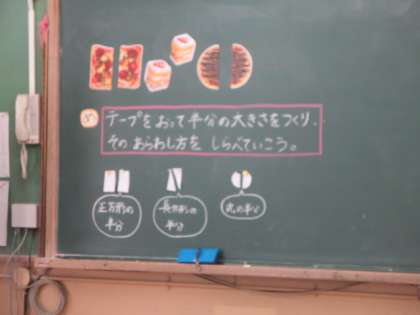 め
テープをおって半分の大きさをつくり、
そのあらわし方をしらべていこう。
正方形の
半分
長方形の
半分
丸の半分